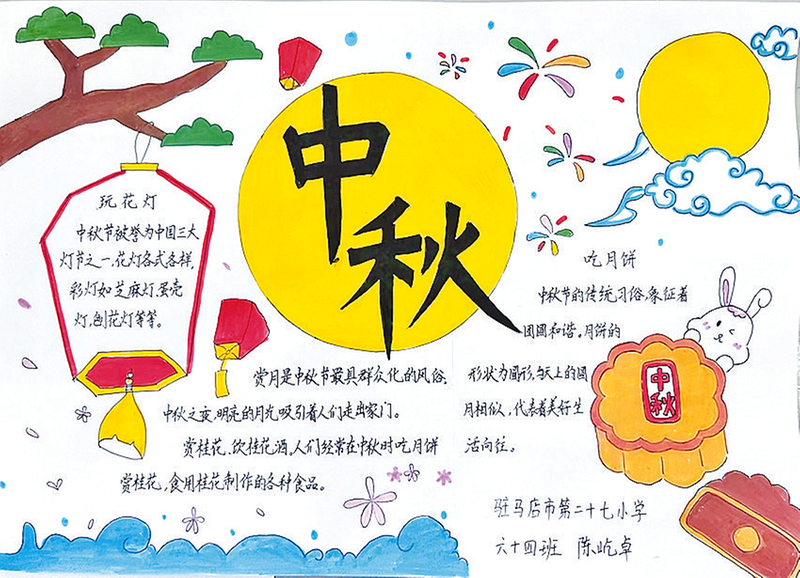 中秋
玩花灯
中秋节被誉为中国三大
灯节之一,花灯各式各样,
彩灯如芝麻灯,蛋壳
灯,刨花灯等等。
赏月是中秋节最具群众化的风俗.
中秋之夜,明亮的月光吸引着人们走出家门。
赏桂花,饮桂花酒。人们经常在中秋时吃月饼
赏桂花,食用桂花制作的各种食品。
吃月饼
中秋节的传统习俗,象征着
团圆和谐。月饼的
形状为圆形,与天上的圆
月相似,代表着美好生
活向往。
中秋
驻马店市第二十七小学
六十四班 陈屹卓